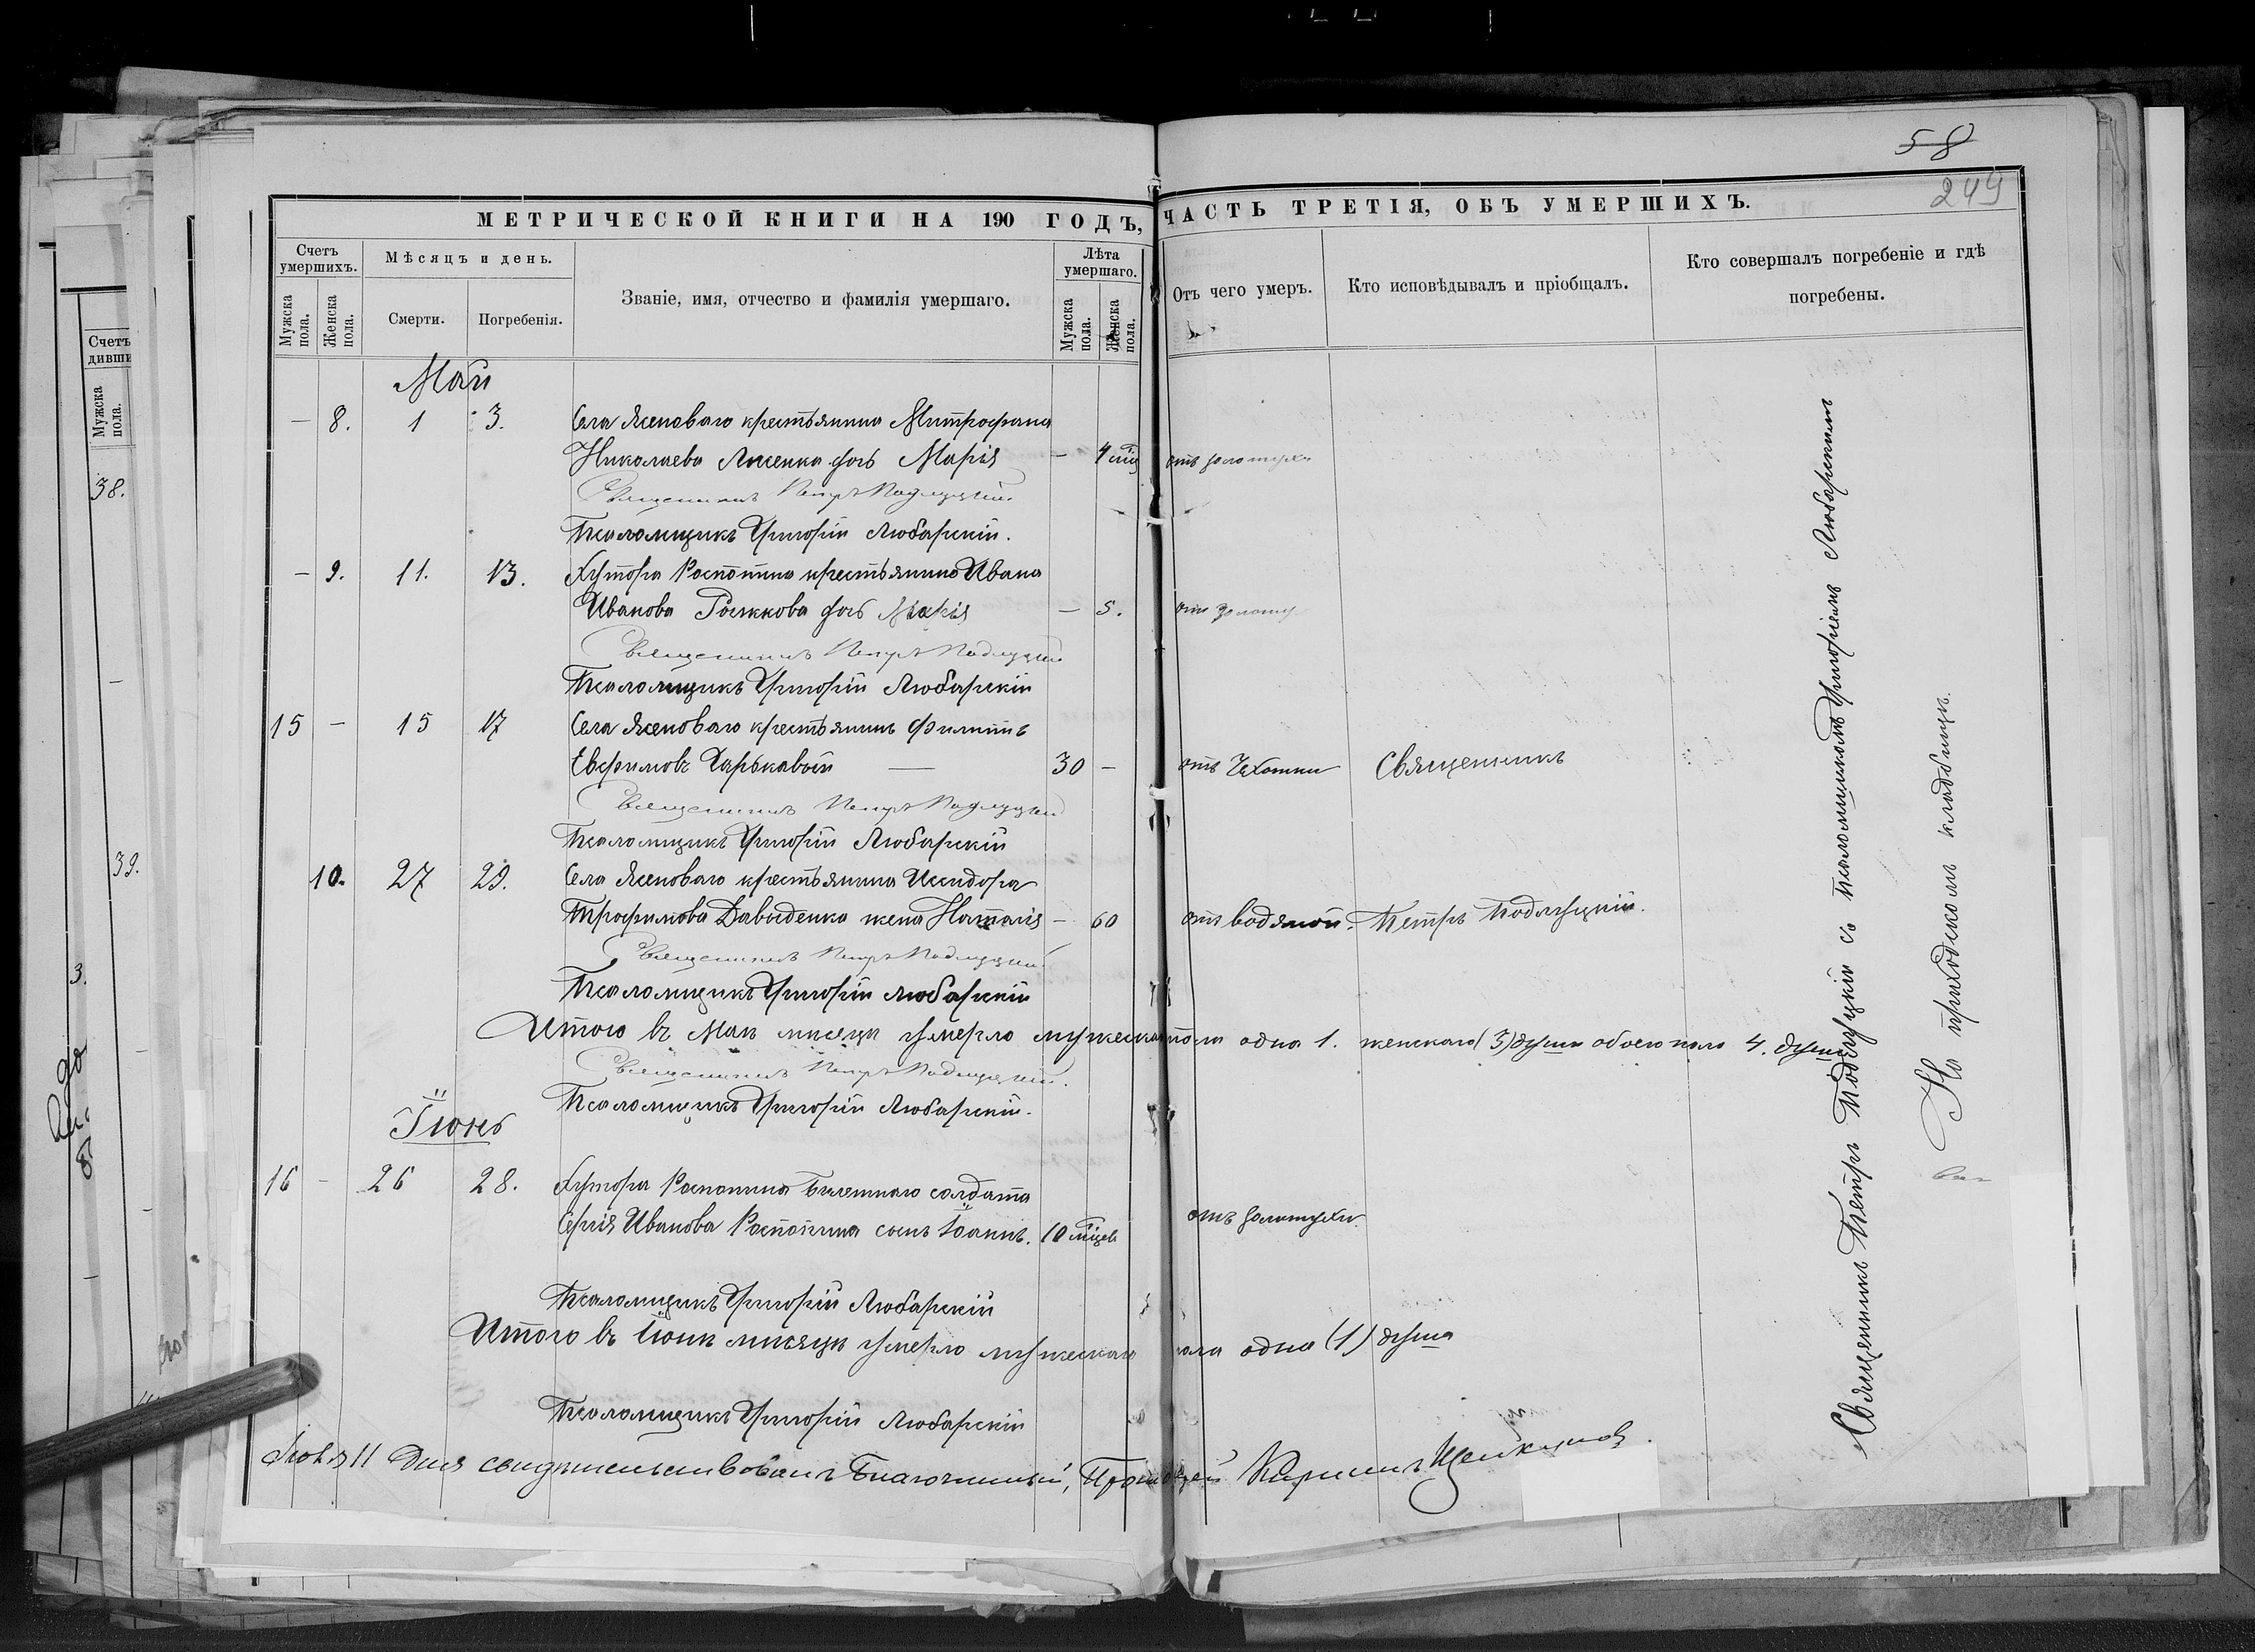 58
249
МЕТРИЧЕСКОЙ КНИГИ НА 190 ГОДЪ, ЧАСТЬ ТРЕТІЯ, ОБЪ УМЕРШИХЪ.
Счетъ умершихъ.
Мужска пола.
Женска пола.
Мѣсяцъ и день.
Смерти.
Погребенія.
Званіе, имя, отчество и фамилія умершаго.
Лѣта умершаго.
Мужска пола.
Женска пола.
Отъ чего умеръ.
Кто исповѣдывалъ и пріобщалъ.
Кто совершалъ погребеніе и гдѣ
погребены.
Май
— 8. 1 3. Села Ясеноваго крестьянина Митрофана
Николаева дочь Марія — 4 отъ золотухи
Священникъ Петръ Подлуцкій.
Псаломщикъ Григорій Любарскій.
— 9. 11. 13. Хутора крестьянина Ивана
Иванова дочь Марія — 5. отъ золоту
Священникъ Петръ Подлуцкій
Псаломщикъ Григорій Любарскій
15 — 15 17 Села Ясеноваго крестьянинъ Филиппъ
Евфимовъ Харькавый — 30 — отъ Чахотки Священникъ
Священникъ Петръ Подлуцкій
Псаломщикъ Григорій Любарскій
10. 27 29. Села Ясеноваго крестьянина Исидора
Трофимова Давыденка жена Наталія — 60 отъ водяной. Петръ Подлуцкій.
Священникъ Петръ Подлуцкій
Псаломщикъ Григорій Любарскій
Итого въ Маѣ мѣсяцѣ умерло мужескаго пола одна 1. женскаго (3) души обоего пола 4. души
Священникъ Петръ Подлуцкій.
Псаломщикъ Григорій Любарскій.
Іюнь
16 — 26 28. Хутора Распопина Билетнаго солдата
Сергія Иванова Распопина сынъ Іоаннъ. 10 мѣцевъ отъ золотухи.
Псаломщикъ Григорій Любарскій
Итого въ Іюнѣ мѣсяцѣ умерло мужескаго пола одна (1) душа
Псаломщикъ Григорій Любарскій
11 дня свидѣтельствовалъ Благочинный, Протоіерей Кириллъ
Священникъ Петръ Подлуцкій съ псаломщикомъ Григоріемъ Любарскимъ
На приходскомъ кладбищѣ.
Счетъ
дивши
Мужска пола.
38.
39.
3.